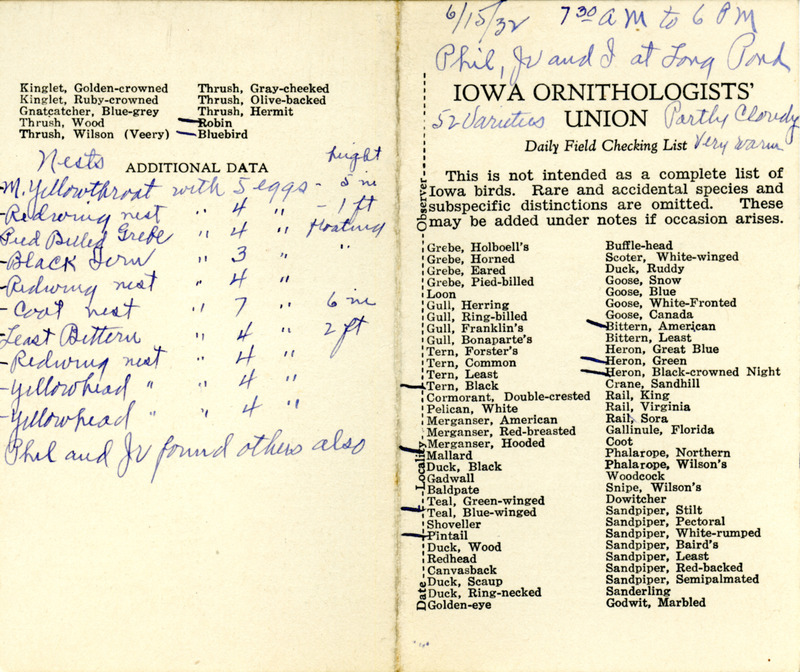 Kinglet, Golden-crowned
Kinglet, Ruby-crowned
Gnatcatcher, Blue-grey
Thrush, Wood
Thrush, Wilson (Veery)
Thrush, Gray-cheeked
Thrush, Olive-backed
Thrush, Hermit
Robin
Bluebird
Nests
ADDITIONAL DATA
height
-M. Yellowthroat with 5 eggs - 5 in
-Redwing nest " 4 " - 1 ft
Pied Billed Grebe " 4 " floating
-Black Tern " 3 " "
-Redwing nest " 4 "
- Coot nest " 7 " 6 in
-Least Bittern " 4 " 2 ft
-Redwing nest " 4 "
-Yellowhead " " 4 "
-Yellowhead " " 4 "
Phil and Jr found others also
6/15/32 7 30 AM to 6 PM
Phil, Jr and I at Long Pond
IOWA ORNITHOLOGISTS'
52 Varieties UNION Partly Cloudy
Daily Field Checking List Very warm
This is not intended as a complete list of
Iowa birds. Rare and accidental species and
subspecific distinctions are omitted. These
may be added under notes if occasion arises.
Date Locality Observer
Grebe, Holboell's
Grebe, Horned
Grebe, Eared
Grebe, Pied-billed
Loon
Gull, Herring
Gull, Ring-billed
Gull, Franklin's
Gull, Bonaparte's
Tern, Forster's
Tern, Common
Tern, Least
Tern, Black
Cormorant, Double-crested
Pelican, White
Merganser, American
Merganser, Red-breasted
Merganser, Hooded
Mallard
Duck, Black
Gadwall
Baldpate
Teal, Green-winged
Teal, Blue-winged
Shoveller
Pintail
Duck, Wood
Redhead
Canvasback
Duck, Scaup
Duck, Ring-necked
Golden-eye
Buffle-head
Scoter, White-winged
Duck, Ruddy
Goose, Snow
Goose, Blue
Goose, White-Fronted
Goose, Canada
Bittern, American
Bittern, Least
Heron, Great Blue
Heron, Green
Heron, Black-crowned Night
Crane, Sandhill
Rail, King
Rail, Virginia
Rail, Sora
Gallinule, Florida
Coot
Phalarope, Northern
Phalarope, Wilson's
Woodcock
Snipe, Wilson's
Dowitcher
Sandpiper, Stilt
Sandpiper, Pectoral
Sandpiper, White-rumped
Sandpiper, Baird's
Sandpiper, Least
Sandpiper, Red-backed
Sandpiper, Semipalmated
Sanderling
Godwit, Marbled